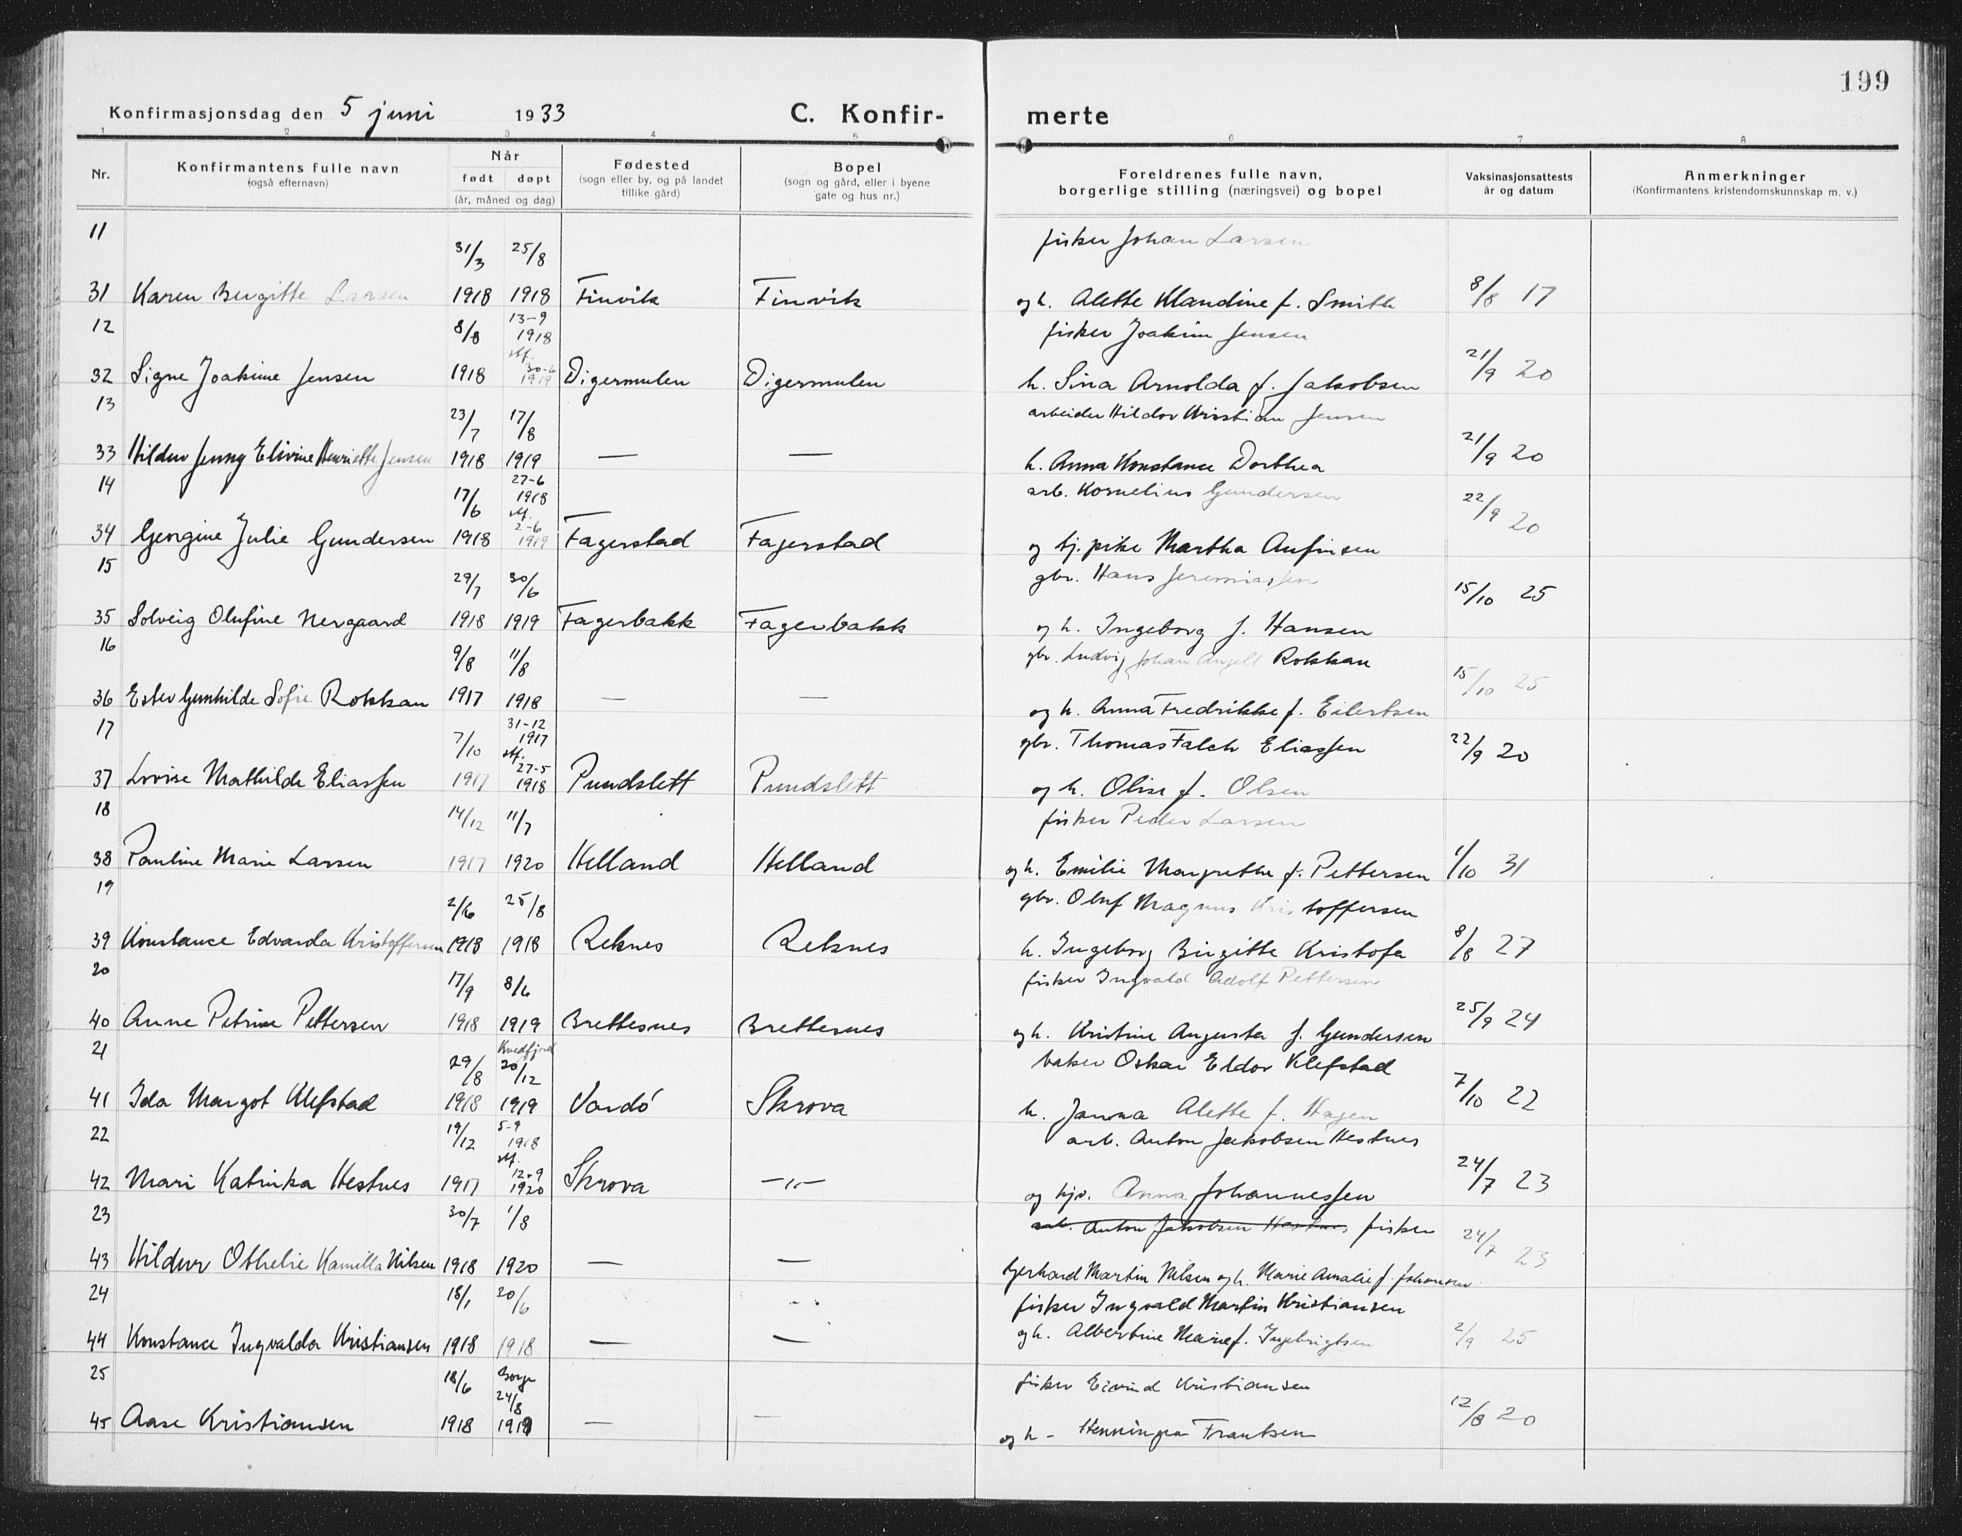 199
Konfirmasjonsdag den 5 juni 1933 C. Konfir-merte
1 2 3 4 5 6 7 8
Nr.
Konfirmantens fulle navn
(også efternavn)
Når
født døpt
(år, måned og dag)
Fødested
(sogn eller by, og på landet
tillike gård)
Bopel
(sogn og gård, eller i byene
gate og hus nr.)
Foreldrenes fulle navn,
borgerlige stilling (næringsvei) og bopel
Vaksinasjonsattests
år og datum
Anmerkninger
(Konfirmantens kristendomskunnskap m. v.)
11 31/3 25/8 fisker Johan Larsen
31 Karen Bergitte Larsen 1918 1918 Finvik Finvik og h. Alette Klandine f. Smith 8/8 17
12 8/8 13-9 1918 fisker Joakim Jensen
32 Signe Joakime Jensen 1918 stf. 30-6 1919 Digermulen Digermulen h. Sina Arnolda f. Jakobsen 21/9 20
13 23/7 17/8 arbeider Hildor Kristian Jensen
33 Hildur Jenny Elivine Henriette Jensen 1918 1919 — — h. Anna Konstance Dorthea 21/9 20
14 17/6 27-6 1918 arb. Kornelius Gundersen
34 Georgine Julie Gundersen 1918 stf. 2-6 1919 Fagerstad Fagerstad og tj. pike Martha Anfinsen 22/9 20
15 29/7 30/6 gbr. Hans Jeremiassen
35 Solveig Olufine Nergaard 1918 1919 Fagerbakk Fagerbakk og h. Ingeborg f. Hansen 15/10 25
16 9/8 11/8 gbr. Ludvig Johan Angell Rokkan
36 Ester Gunhilde Sofie Rokkan 1917 1918 — — og h. Anna Fredrikke f. Eilertsen 15/10 25
17 7/10 31-12 1917 gbr. Thomas Falch Eliassen
37 Lovise Mathilde Eliassen 1917 stf. 27-5 1918 Pundslett Pundslett og h. Olise f. Olsen 22/9 20
18 14/12 11/7 fisker Peder Larsen
38 Pauline Marie Larsen 1917 1920 Helland Helland og h. Emilie Margrethe f. Pettersen 1/10 31
19 2/6 25/8 gbr. Oluf Magnus Kristoffersen
39 Konstance Edvarda Kristoffersen 1918 1918 Reknes Reknes h. Ingeborg Birgitte Kristofa 8/8 27
20 17/9 8/6 fisker Ingvald Adolf Pettersen
40 Anne Petrine Pettersen 1918 1919 Brettesnes Brettesnes og h. Kristine Augusta f. Gundersen 25/9 24
21 29/8 Kvedfjord 20/12 baker Oskar Eldor Klefstad
41 Ida Margot Klefstad 1918 1919 Vardó Skrova h. Janna Alette f. Hagen 7/10 22
22 19/12 5-9 1918 arb. Anton Jakobsen Hestnes
42 Mari Katinka Hestnes 1917 stf. 12-9 1920 Skrova —"— og hjv. Anna Johannessen 24/7 23
23 30/7 1/8 arb. Anton Jakobsen Hestnes fisker
43 Hildur Othelie Kamilla Nilsen 1918 1920 — — Gerhard Martin Nilsen og h. Marie Amalie f. Johansen 24/7 23
24 18/1 20/6 fisker Ingvald Martin Kristiansen
44 Konstance Ingvalda Kristiansen 1918 1918 — — og h. Albertine Marie f. Ingebrigtsen 2/9 25
25 18/6 Borge 24/8 fisker Eivind Kristiansen
45 Aase Kristiansen 1918 1919 — — og h - Henningea Frantsen 12/8 20